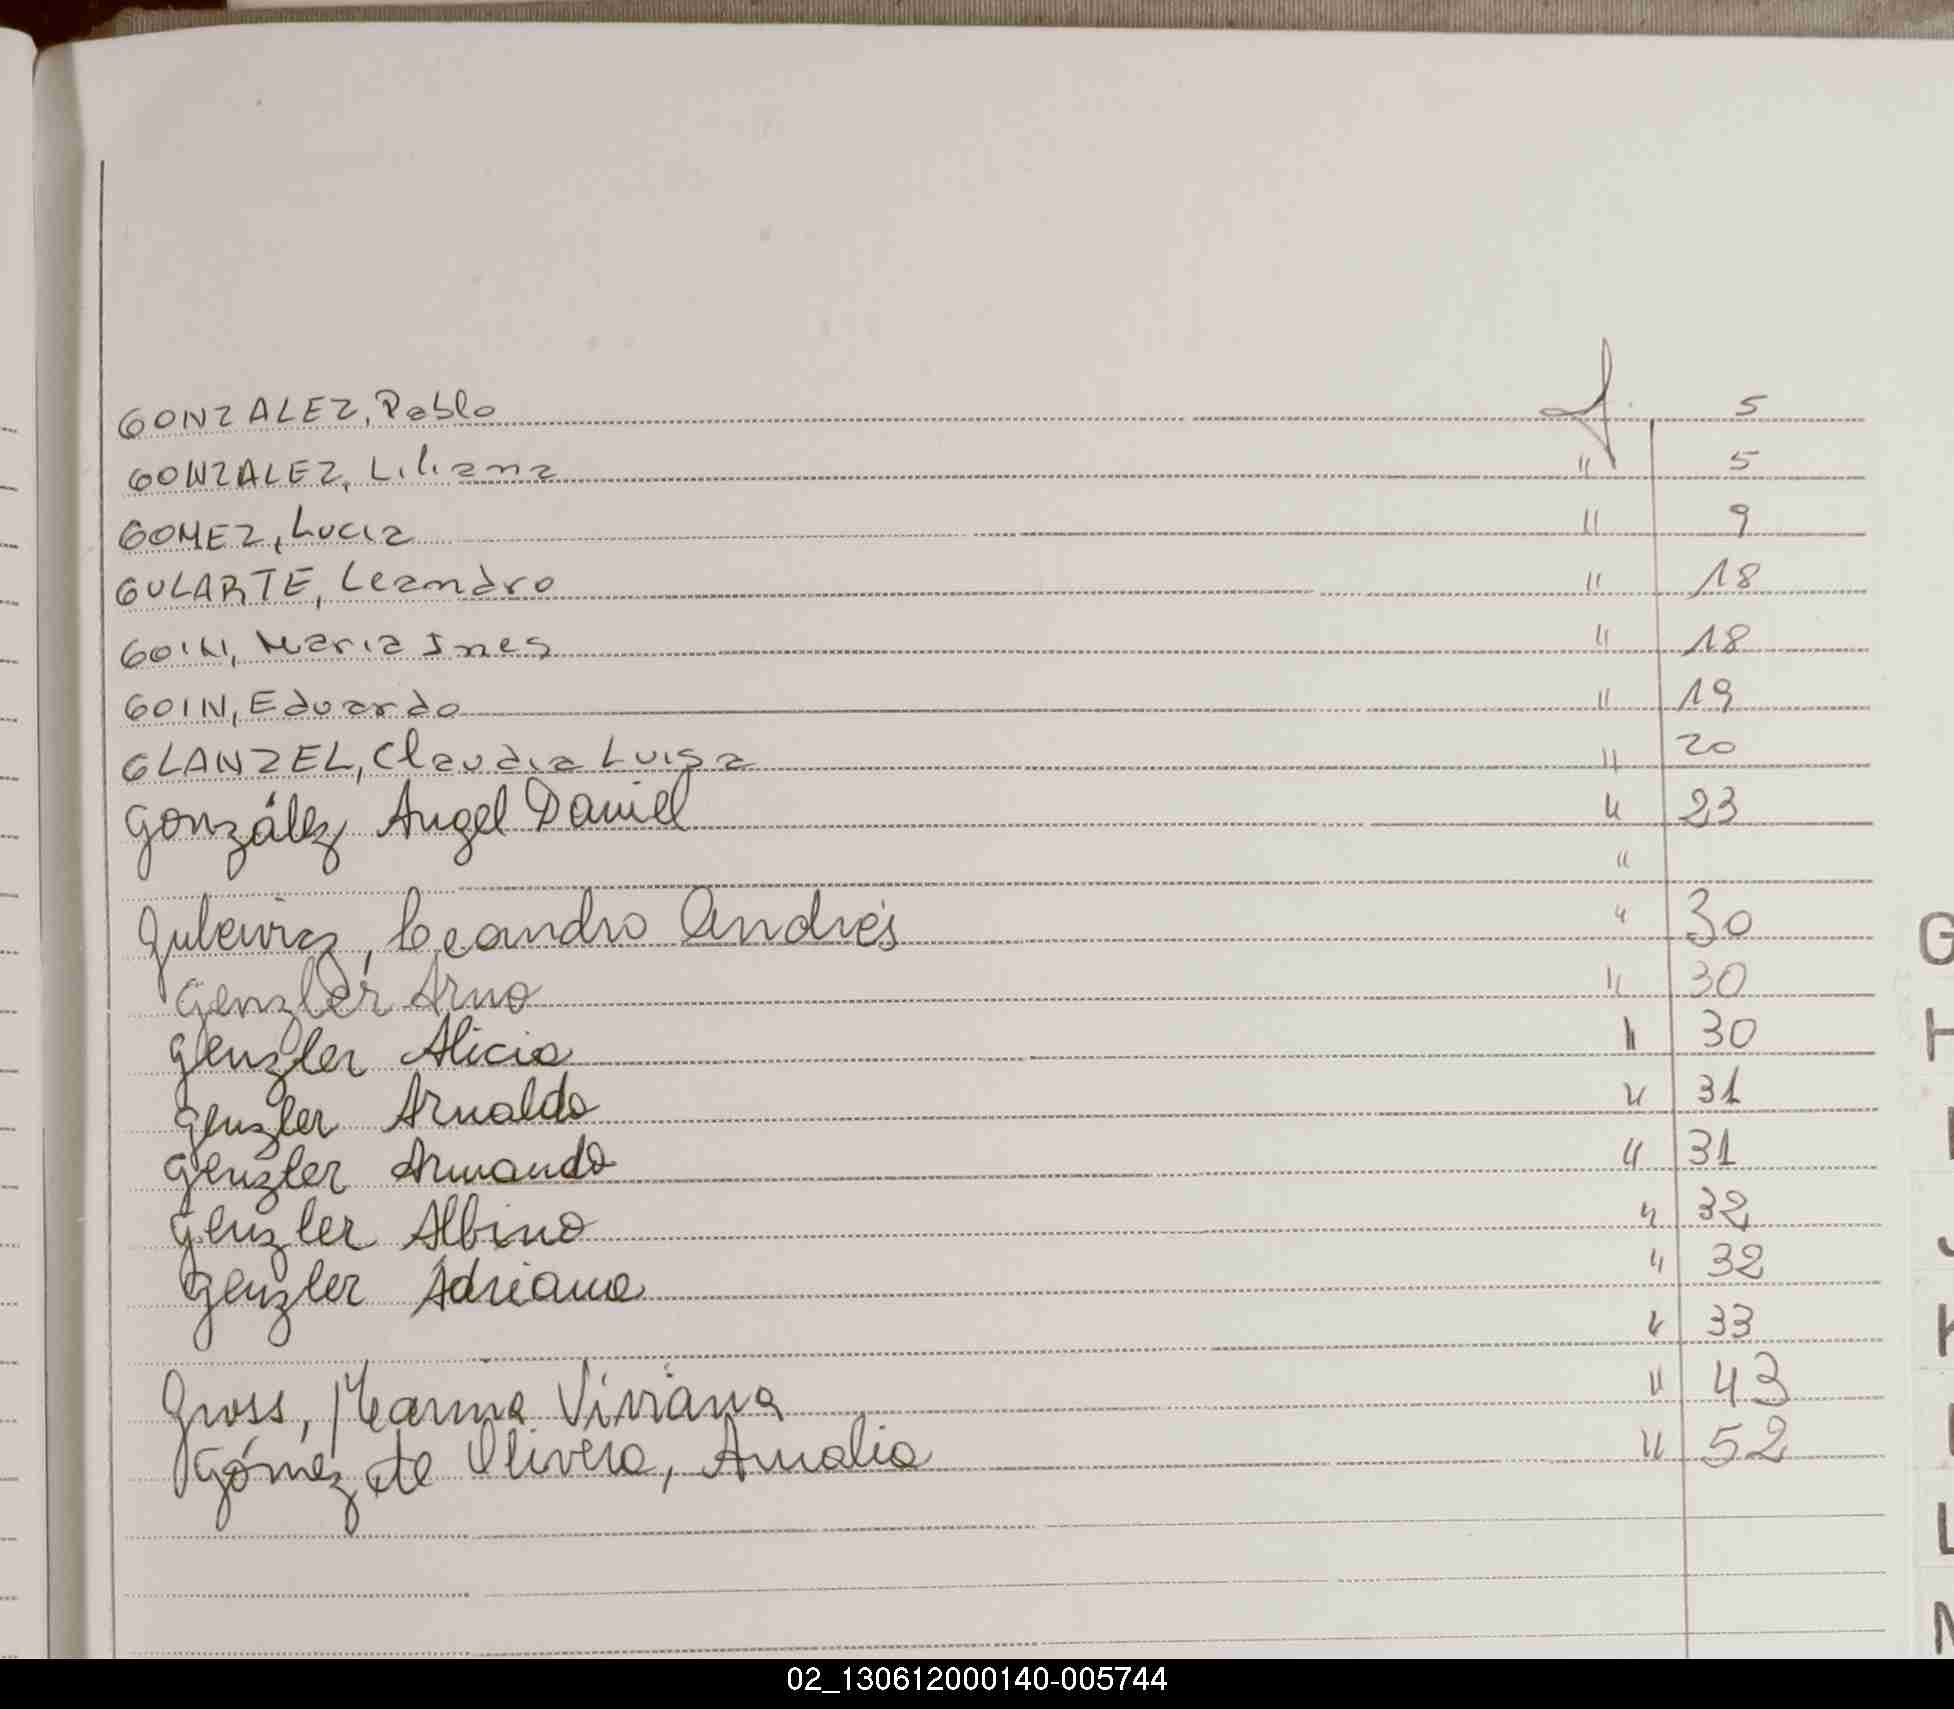 GONZALEZ, Pablo f. 5
GONZALEZ, Liliana " 5
GOMEZ, Lucia " 9
GULARTE, Leandro " 18
GOIN, Maria Ines " 18
GOIN, Eduardo " 19
GLANZEL, Claudia Luisa " 20
González Angel Daniel " 23
"
Gulewicz, Leandro Andrés " 30
Genzler Arno " 30
Genzler Alicia " 30
Genzler Arnaldo " 31
Genzler Armando " 31
Genzler Albino " 32
Genzler Adriana " 32
" 33
Gross, Marina Viviana " 43
Gómez de Olivera, Amalia " 52
G
H
I
J
K
L
02_130612000140-005744